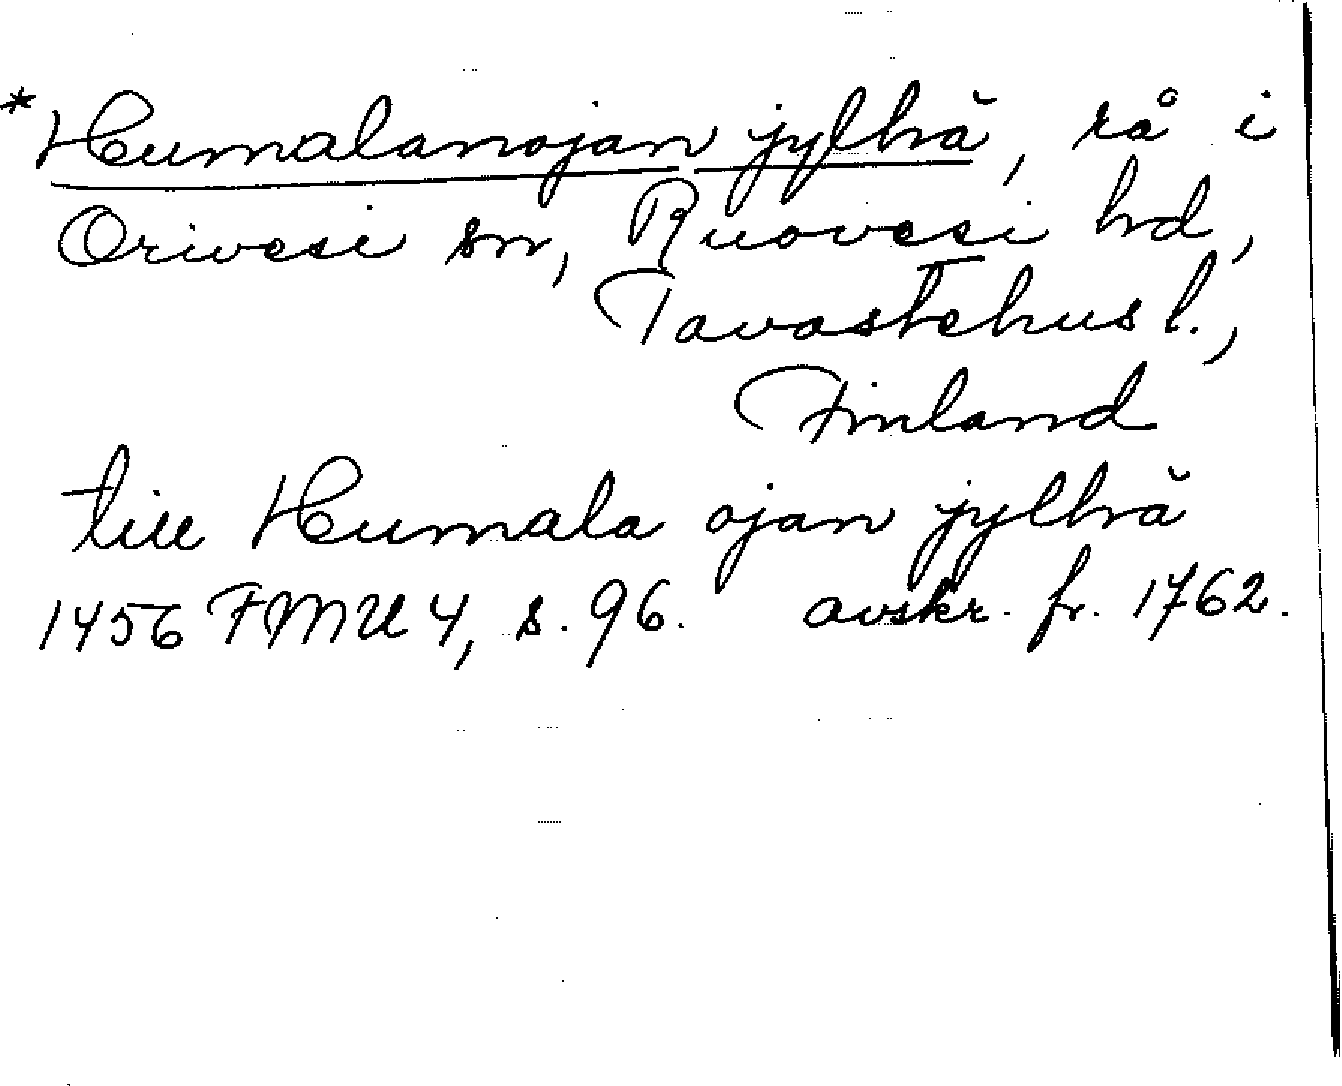 *Humalanojan jylhä, rå i
Orivesi sn, Ruovesi hd,
Tavastehus l.,
Finland
till Humala ojan jylhä
1456 FMU 4, s. 96. avskr. fr. 1762.